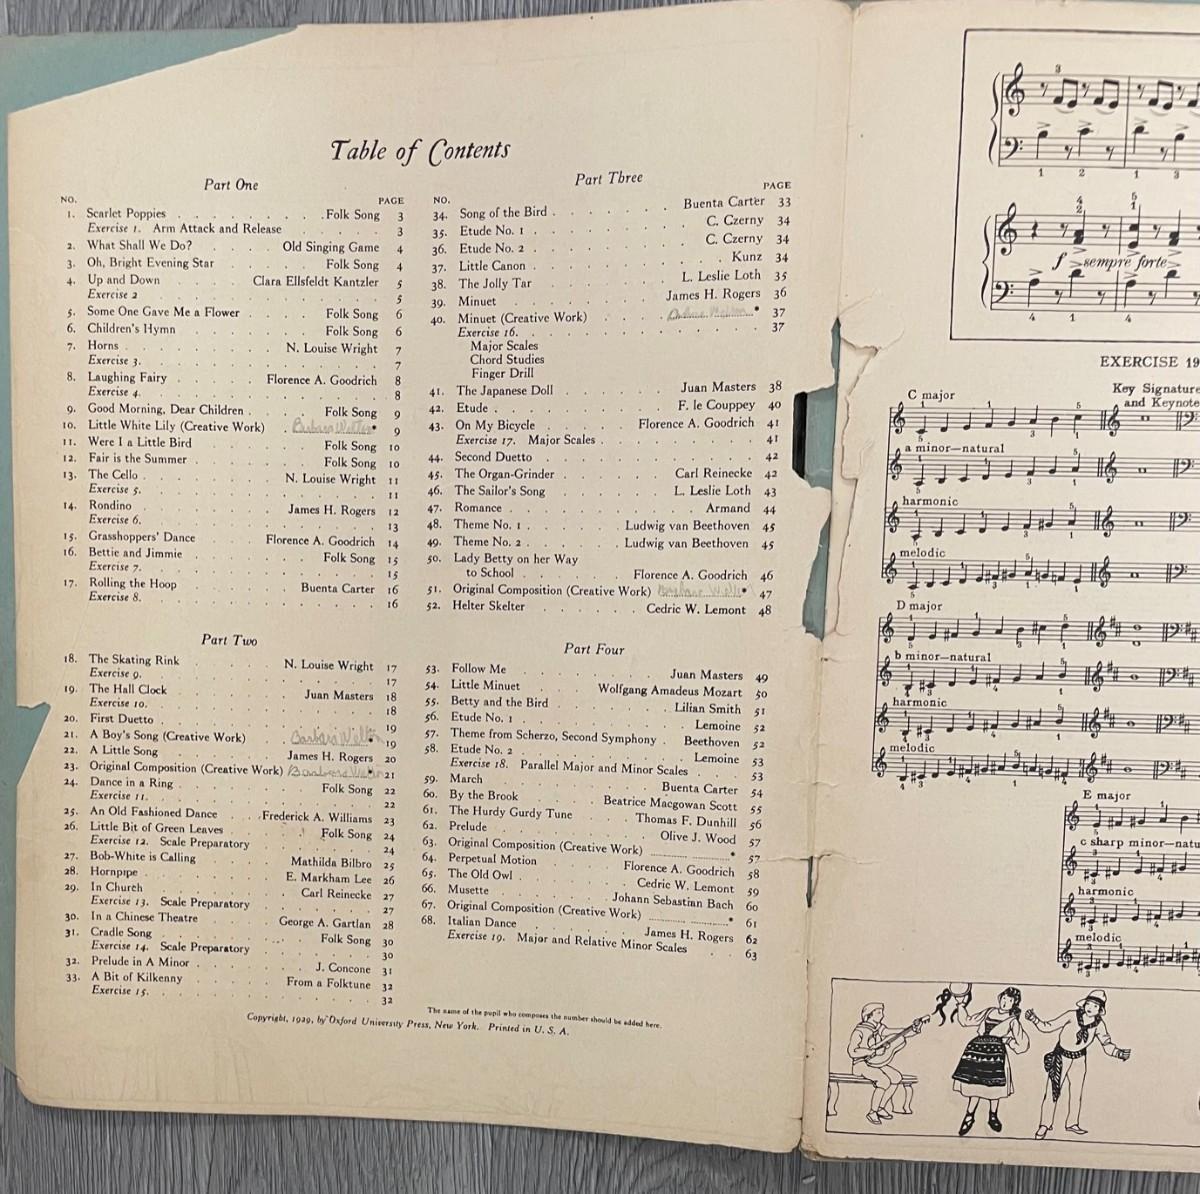 Table of Contents
Part One
NO. PAGE
1. Scarlet Poppies Folk Song 3
Exercise 1. Arm Attack and Release 3
2. What Shall We Do? Old Singing Game 4
3. Oh, Bright Evening Star Folk Song 4
4. Up and Down Clara Ellsfeldt Kantzler 5
Exercise 2 5
5. Some One Gave Me a Flower Folk Song 6
6. Children's Hymn Folk Song 6
7. Horns N. Louise Wright 7
Exercise 3. 7
8. Laughing Fairy Florence A. Goodrich 8
Exercise 4. 8
9. Good Morning, Dear Children Folk Song 9
10. Little White Lily (Creative Work) Barbara * 9
11. Were I a Little Bird Folk Song 10
12. Fair is the Summer Folk Song 10
13. The Cello N. Louise Wright 11
Exercise 5. 11
14. Rondino James H. Rogers 12
Exercise 6. 13
15. Grasshoppers' Dance Florence A. Goodrich 14
16. Bettie and Jimmie Folk Song 15
Exercise 7. 15
17. Rolling the Hoop Buenta Carter 16
Exercise 8. 16
Part Two
18. The Skating Rink N. Louise Wright 17
Exercise 9. 17
19. The Hall Clock Juan Masters 18
Exercise 10. 18
20. First Duetto 19
21. A Boy's Song (Creative Work) Barbara * 19
22. A Little Song James H. Rogers 20
23. Original Composition (Creative Work) Barbara * 21
24. Dance in a Ring Folk Song 22
Exercise 11. 22
25. An Old Fashioned Dance Frederick A. Williams 23
26. Little Bit of Green Leaves Folk Song 24
Exercise 12. Scale Preparatory 24
27. Bob-White is Calling Mathilda Bilbro 25
28. Hornpipe E. Markham Lee 26
29. In Church Carl Reinecke 27
Exercise 13. Scale Preparatory 27
30. In a Chinese Theatre George A. Gartlan 28
31. Cradle Song Folk Song 30
Exercise 14. Scale Preparatory 30
32. Prelude in A Minor J. Concone 31
33. A Bit of Kilkenny From a Folktune 32
Exercise 15. 32
Part Three
NO. PAGE
34. Song of the Bird Buenta Carter 33
35. Etude No. 1 C. Czerny 34
36. Etude No. 2 C. Czerny 34
37. Little Canon Kunz 34
38. The Jolly Tar L. Leslie Loth 35
39. Minuet James H. Rogers 36
40. Minuet (Creative Work) * 37
Exercise 16. 37
Major Scales
Chord Studies
Finger Drill
41. The Japanese Doll Juan Masters 38
42. Etude F. le Couppey 40
43. On My Bicycle Florence A. Goodrich 41
Exercise 17. Major Scales 41
44. Second Duetto 42
45. The Organ-Grinder Carl Reinecke 42
46. The Sailor's Song L. Leslie Loth 43
47. Romance Armand 44
48. Theme No. 1 Ludwig van Beethoven 45
49. Theme No. 2 Ludwig van Beethoven 45
50. Lady Betty on her Way
to School Florence A. Goodrich 46
51. Original Composition (Creative Work) Barbara * 47
52. Helter Skelter Cedric W. Lemont 48
Part Four
53. Follow Me Juan Masters 49
54. Little Minuet Wolfgang Amadeus Mozart 50
55. Betty and the Bird Lilian Smith 51
56. Etude No. 1 Lemoine 52
57. Theme from Scherzo, Second Symphony Beethoven 52
58. Etude No. 2 Lemoine 53
Exercise 18. Parallel Major and Minor Scales 53
59. March Buenta Carter 54
60. By the Brook Beatrice Macgowan Scott 55
61. The Hurdy Gurdy Tune Thomas F. Dunhill 56
62. Prelude Olive J. Wood 57
63. Original Composition (Creative Work) * 57
64. Perpetual Motion Florence A. Goodrich 58
65. The Old Owl Cedric W. Lemont 59
66. Musette Johann Sebastian Bach 60
67. Original Composition (Creative Work) * 61
68. Italian Dance James H. Rogers 62
Exercise 19. Major and Relative Minor Scales 63
The name of the pupil who composes the number should be added here.
Copyright, 1929, by Oxford University Press, New York. Printed in U. S. A.
f sempre forte
EXERCISE 19
Key Signature
and Keynote
C major
a minor—natural
harmonic
melodic
D major
b minor—natural
harmonic
melodic
E major
c sharp minor—natu
harmonic
melodic